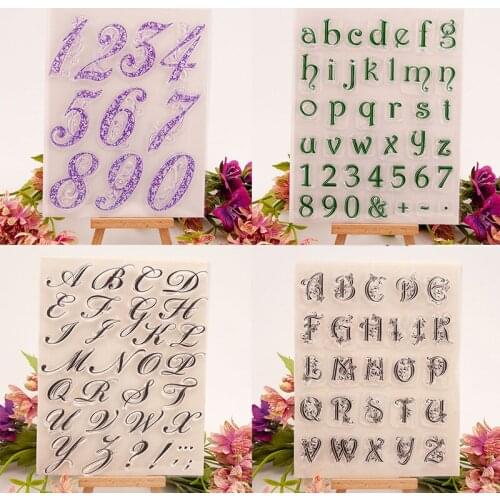 1234
567
890
abcdefg
hijklmn
opqrst
uvwxyz
1234567
890&+-.
ABCD
EFGH
IJKL
MNOP
QRST
UVWX
YZ?!,.:;
ABCDE
FGHIJK
LMNOP
QRSTU
VWXYZ